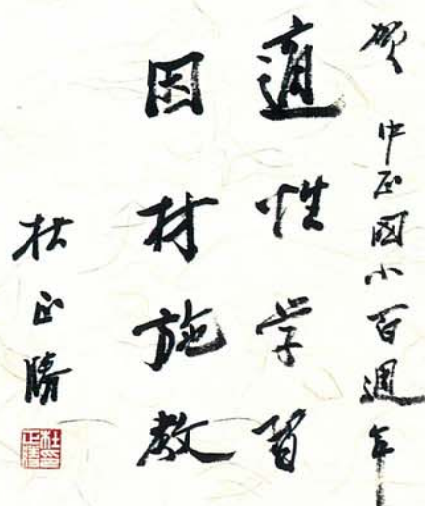 賀 中正國小百週年
適性學習
因材施教
杜正勝
杜正勝